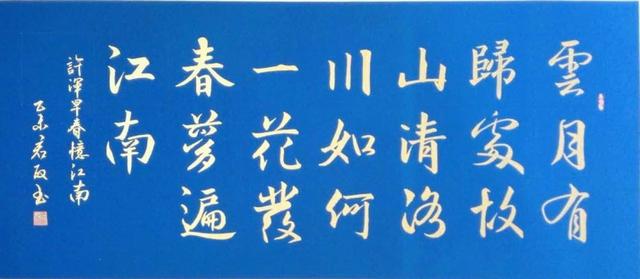 雲月有
歸處故
山清洛
川如何
一花發
春夢遍
江南
許渾早春憶江南
乙未君